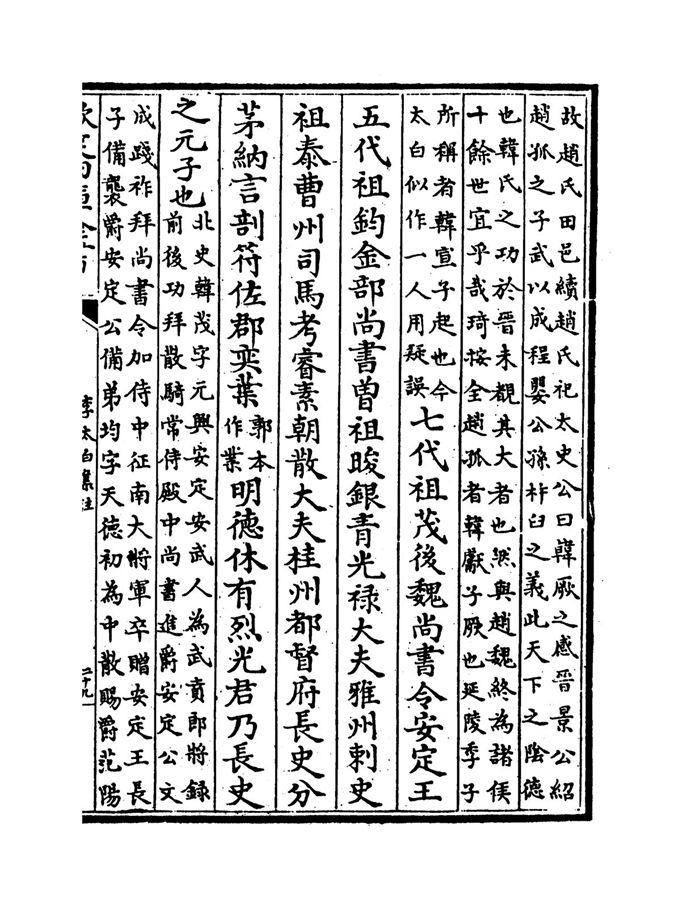 故趙氏田邑續趙氏祀太史公曰韓厥之感晉景公紹
趙孤之子武以成程嬰公孫杵臼之義此天下之陰德
也韓氏之功於晉未覩其大者也然與趙魏終為諸侯
十餘世宜乎哉琦按全趙孤者韓獻子厥也延陵季子
所稱者韓宣子起也今
太白似作一人用疑誤
七代祖茂後魏尚書令安定王
五代祖鈞金部尚書曽祖晙銀青光禄大夫雅州刺史
祖泰曹州司馬考睿素朝散大夫桂州都督府長史分
茅納言剖符佐郡奕葉
郭本
作業
明德休有烈光君乃長史
之元子也
北史韓茂字元興安定安武人為武賁郎將録
前後功拜散騎常侍殿中尚書進爵安定公文
成踐祚拜尚書令加侍中征南大將軍卒贈安定王長
子備襲爵安定公備弟均字天德初為中散賜爵范陽
李太白集注
二十九